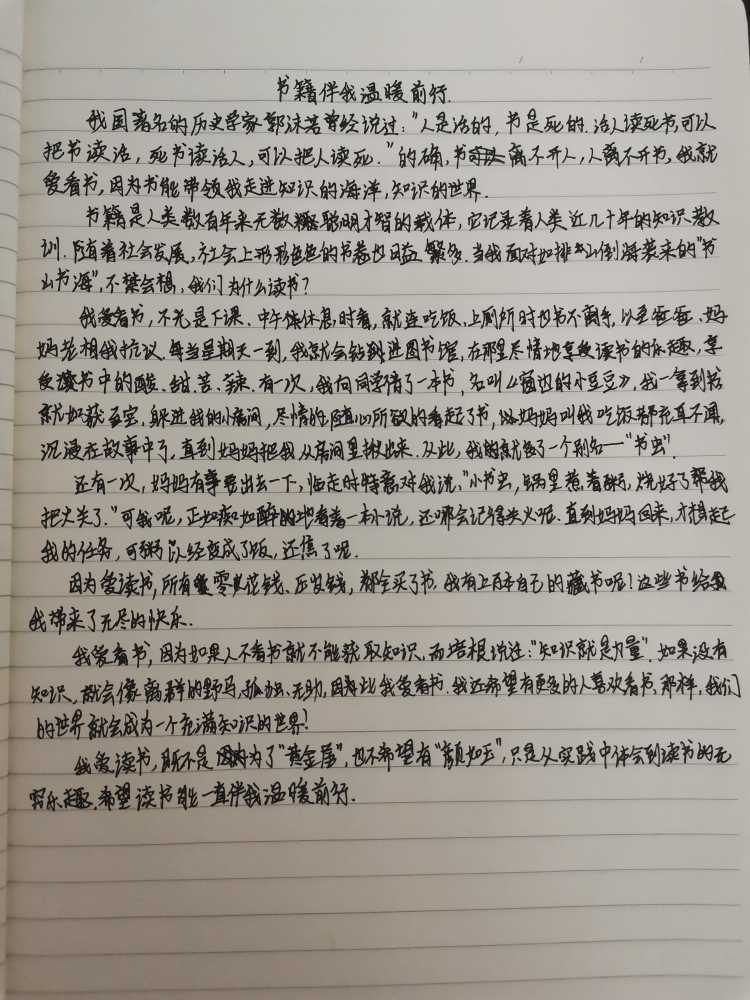 书籍伴我温暖前行.
我国著名的历史学家郭沫若曾经说过:"人是活的,书是死的.活人读死书,可以
把书读活,死书读活人,可以把人读死."的确,书离不开人,人离不开书,我就
爱看书,因为书能带领我走进知识的海洋,知识的世界.
书籍是人类数百年来无数聪明才智的载体,它记录着人类近几十年的知识、教
训.随着社会发展,社会上形形色色的书卷也日益繁多.当我面对如排山倒海袭来的"书
山书海",不禁会想,我们为什么读书?
我爱看书,不光是下课、中午休息时看,就连吃饭、上厕所时也书不离手,以至爸爸、妈
妈老相我抗议.每当星期天一到,我就会钻到进图书馆,在那里尽情地享受读书的乐趣,享
受读书中的酸、甜、苦、辣.有一次,我向同学借了一本书,名叫《窗边的小豆豆》,我一拿到书
就如获至宝,躲进我的小房间,尽情的、随心所欲的看起了书,妈妈叫我吃饭都充耳不闻,
沉浸在故事中了,直到妈妈把我从房间里揪出来.从此,我就多了一个别名——"书虫".
还有一次,妈妈有事要出去一下,临走时特意对我说,"小书虫,锅里煮着粥,烧好了帮我
把火关了."可我呢,正如痴如醉的地看着一本小说,还哪会记得关火呢.直到妈妈回来,才想起
我的任务,可粥以经变成了饭,还焦了呢.
因为爱读书,所有零花钱、压岁钱,都全买了书.我有上百本自己的藏书呢!这些书给
我带来了无尽的快乐.
我爱看书,因为如果人不看书就不能获取知识.而培根说过:"知识就是力量".如果没有
知识,就会像离群的野马,孤独、无助,因此我爱看书.我还希望有更多的人喜欢看书,那样,我们
的世界就会成为一个充满知识的世界!
我爱读书,既不是为了"黄金屋",也不希望有"颜如玉",只是从实践中体会到读书的无
穷乐趣.希望读书能一直伴我温暖前行.